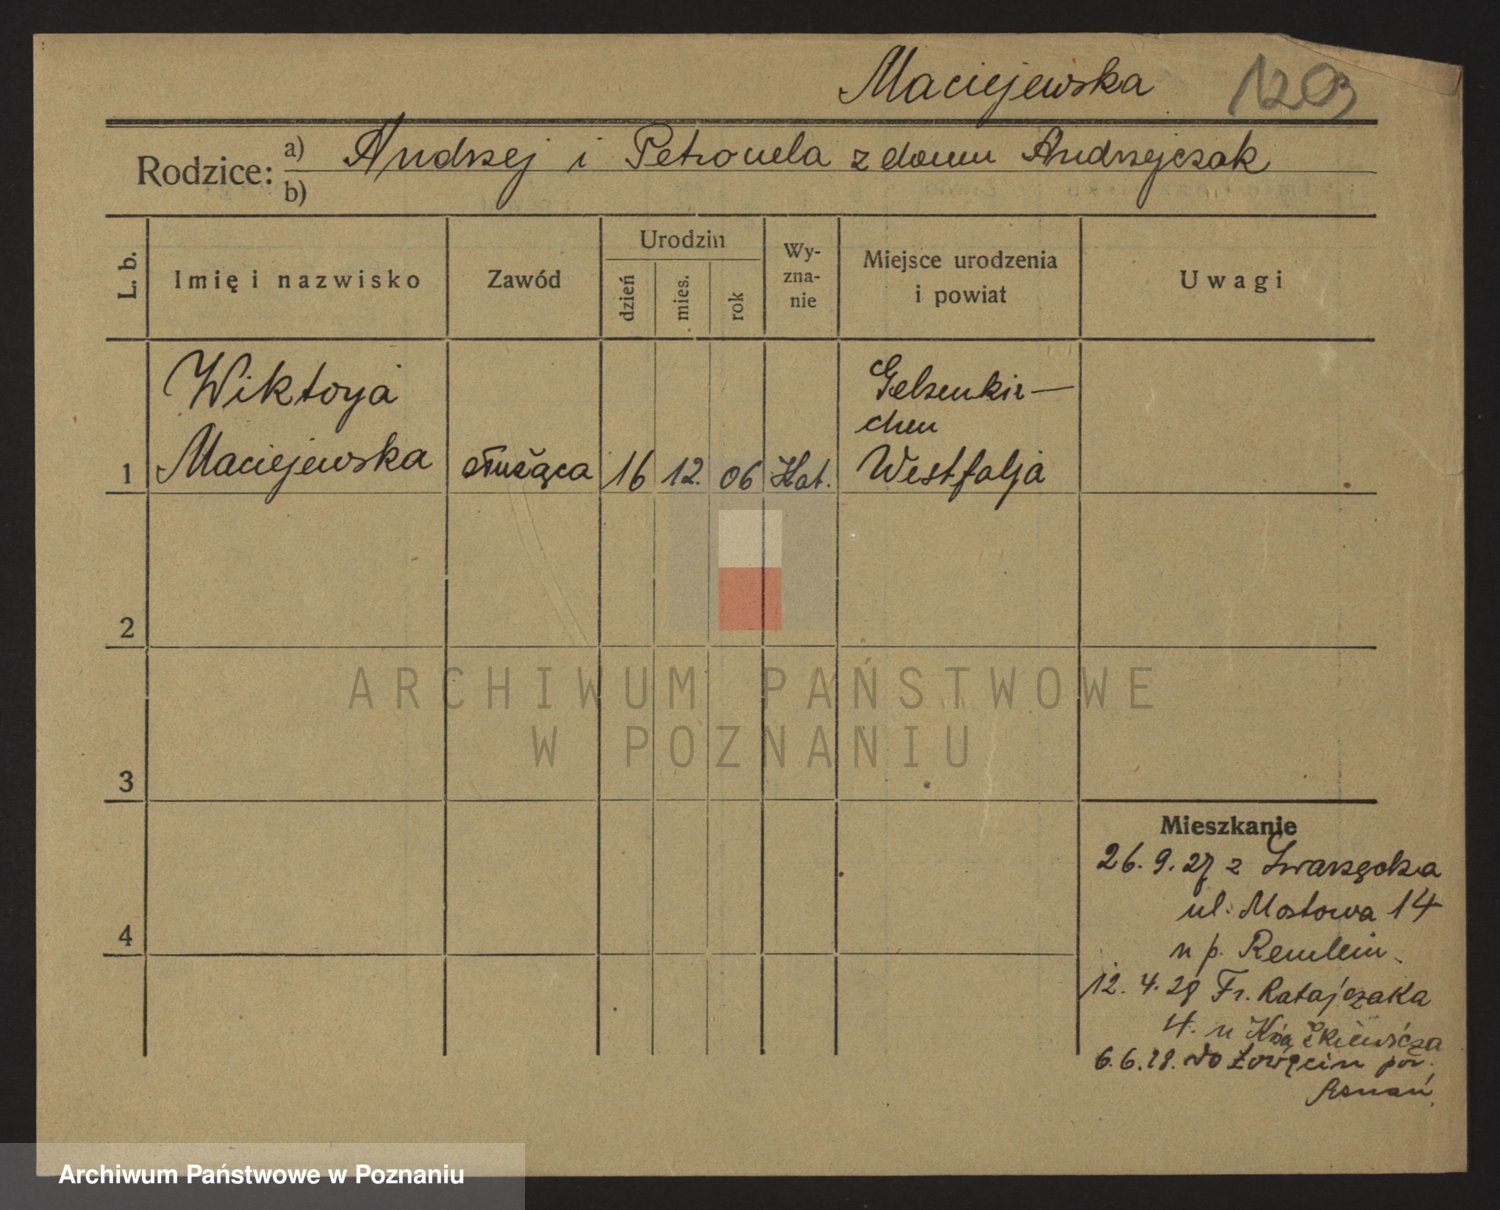 Maciejewska 1203
Rodzice: a) Andrzej i Petronela z domu Andrzejczak
b)
L. b. Imię i nazwisko Zawód Urodzin dzień mies. rok Wy-zna-nie Miejsce urodzenia i powiat Uwagi
Wiktorja Gelsenkir-
chen
1 Maciejewska służąca 16 12. 06 Kat. Westfalja
2
ARCHIWUM PAŃSTWOWE
W POZNANIU
3
Mieszkanie
26. 9. 27 z Swarzędza
ul. Mostowa 14
4
u p. Remlein
12. 4. 28 Fr. Ratajczaka
4. u
6. 6. 28. do Łowęcin pow.
Poznań.
Archiwum Państwowe w Poznaniu